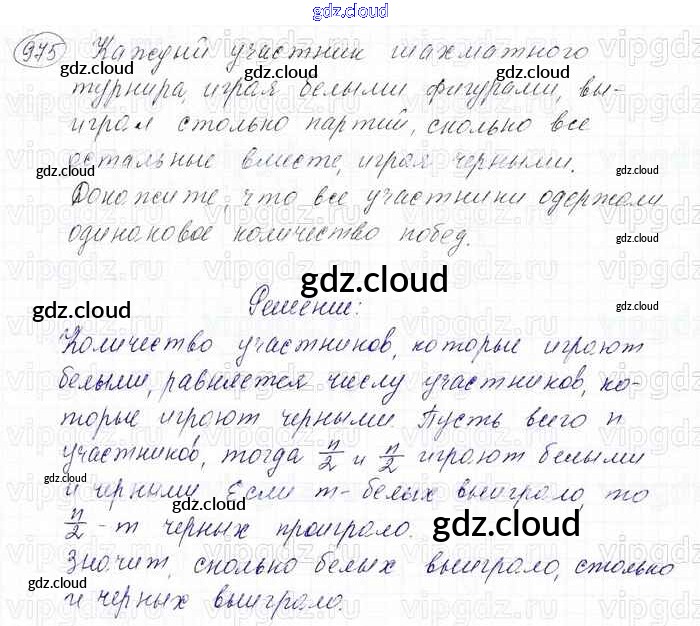 gdz.cloud
975 Каждый участник шахматного
турнира, играя белыми фигурами, вы-
играл столько партий, сколько все
остальные вместе, играя черными.
Докажите, что все участники одержали
одинаковое количество побед.
Решение:
Количество участников, которые играют
белыми, равняется числу участников, ко-
торые играют черными. Пусть всего n
участников, тогда n/2 и n/2 играют белыми
и черными. Если m - белых выиграло, то
n/2 - m черных проиграло.
Значит, сколько белых выиграло, столько
и черных выиграло.